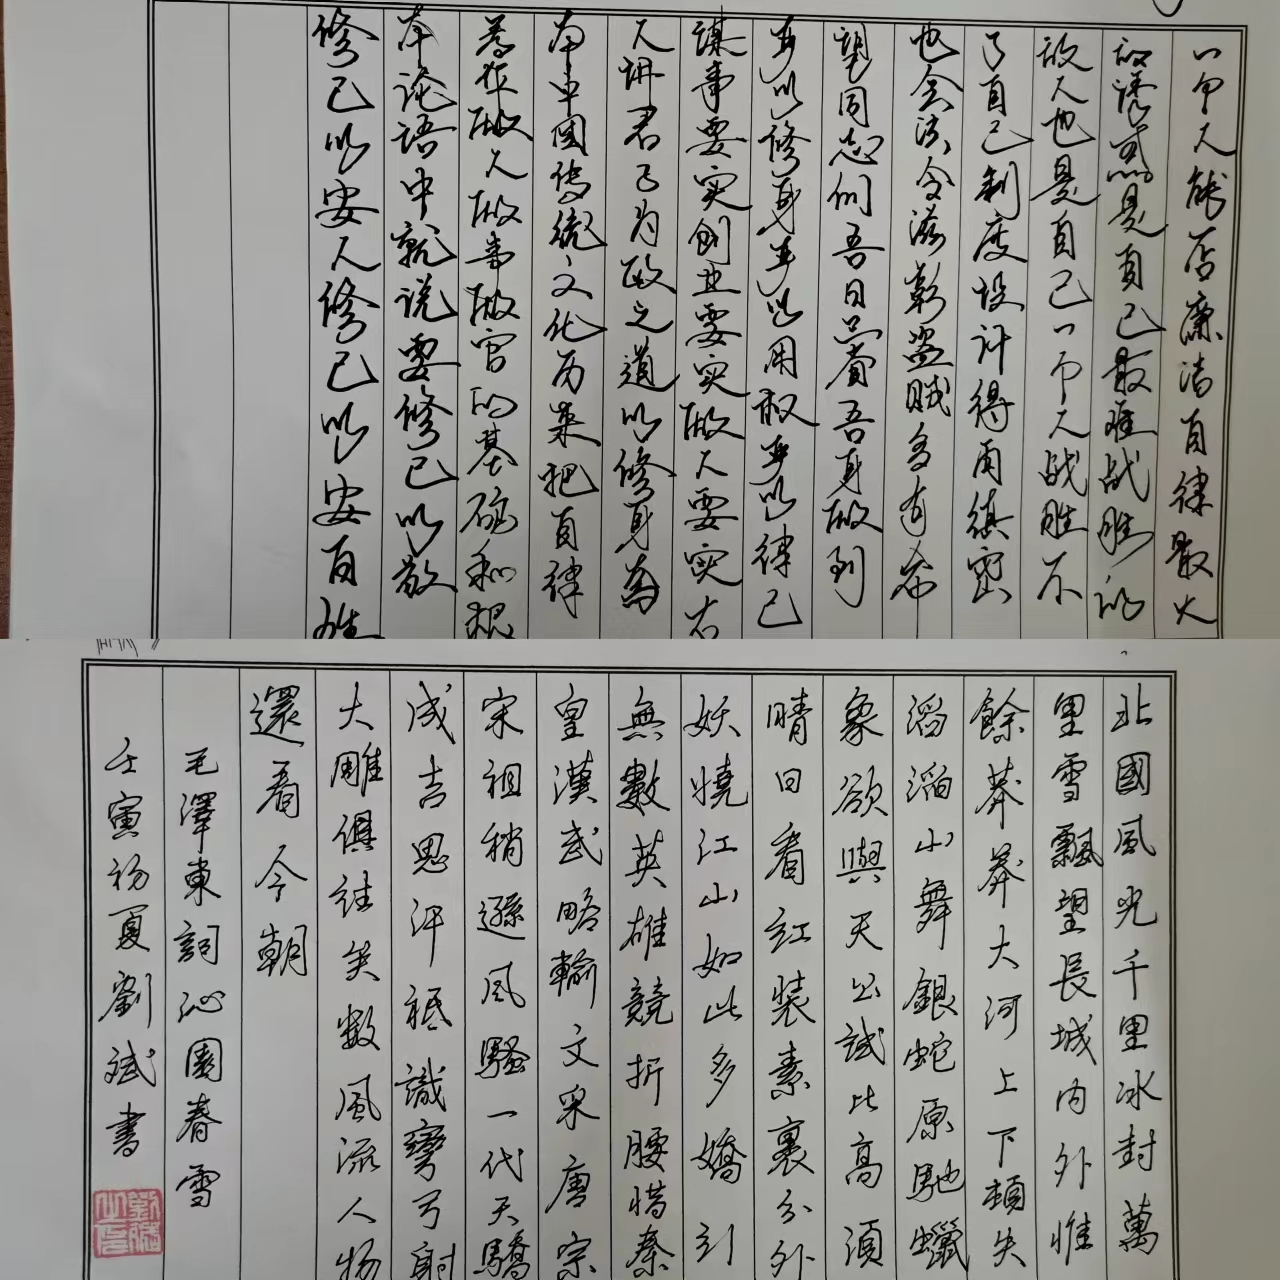 一个人能否廉洁自律最大
的诱惑是自己最难战胜的
敌人也是自己一个人战胜不
了自己制度设计得再缜密
也会法令滋彰盗贼多有希
望同志们吾日三省吾身做到
严以修身严以用权严以律己
谋事要实创业要实做人要实古
人讲君子为政之道以修身为
本中国传统文化历来把自律
看作做人做事做官的基础和根
本论语中就说要修己以敬
修己以安人修己以安百姓
北國風光千里冰封萬
里雪飄望長城內外惟
餘莽莽大河上下頓失
滔滔山舞銀蛇原馳蠟
象欲與天公試比高須
晴日看紅裝素裹分外
妖嬈江山如此多嬌引
無數英雄競折腰惜秦
皇漢武略輸文采唐宗
宋祖稍遜風騷一代天驕
成吉思汗祗識彎弓射
大雕俱往矣數風流人物
還看今朝
毛澤東詞沁園春雪
壬寅初夏劉斌書